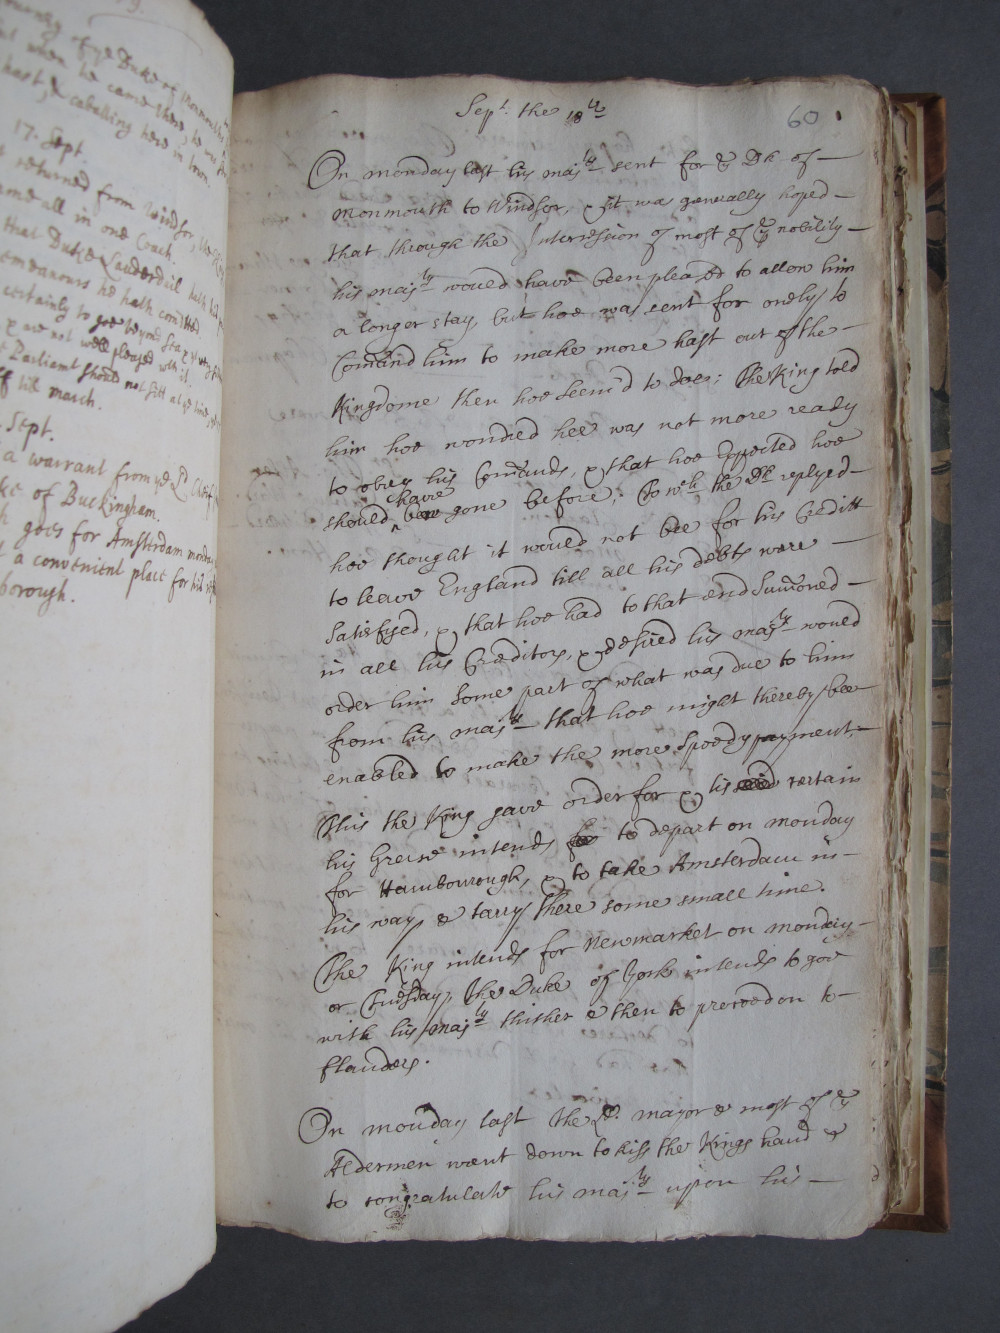 17. Sept
returned from Windsor,
all in one Coach.
that Duke Lauderdail hath
endeavours he hath
certainly to goe beyond Sea,
are not well pleased with it.
Parliamt should not sitt
till march.
Sept.
a warrant from ye Ld Cheif
of Buckingham.
goes for Amsterdam monday
a convenient place for his
borough.
Sept. the 18th
60
On monday last his majty sent for ye Dk of
monmouth to Windsor, & it was generally hoped
that through the Intersession of most of ye nobility
his majty would have been pleased to allow him
a longer stay, but hee was sent for onely to
Comand him to make more hast out of the
Kingdome then hee seem'd to doe; The King told
him hee wondred hee was not more ready
to obey his Comands, & that hee Expected hee
should have gone before; To wch the Dk replyed
hee thought it would not bee for his Creditt
to leave England till all his debts were
Satisfyed, & that hee had to that end Sumoned
in all his Creditors, & desired his majty would
order him some part of what was due to him
from his majty that hee might thereby bee
enabled to make the more speedy payment,
this the King gave order for & tis certain
his Grace intends to depart on monday
for Hambourough, & to take Amsterdam in
his way, & tarry there some small time.
The King intends for Newmarket on monday
or Tuesday, the Duke of York intends to goe
with his majty thither & then to proceed on to
flanders.
On monday last the Ld. mayor & most of ye
Aldermen went down to kiss the Kings hand &
to congratulate his majty upon his